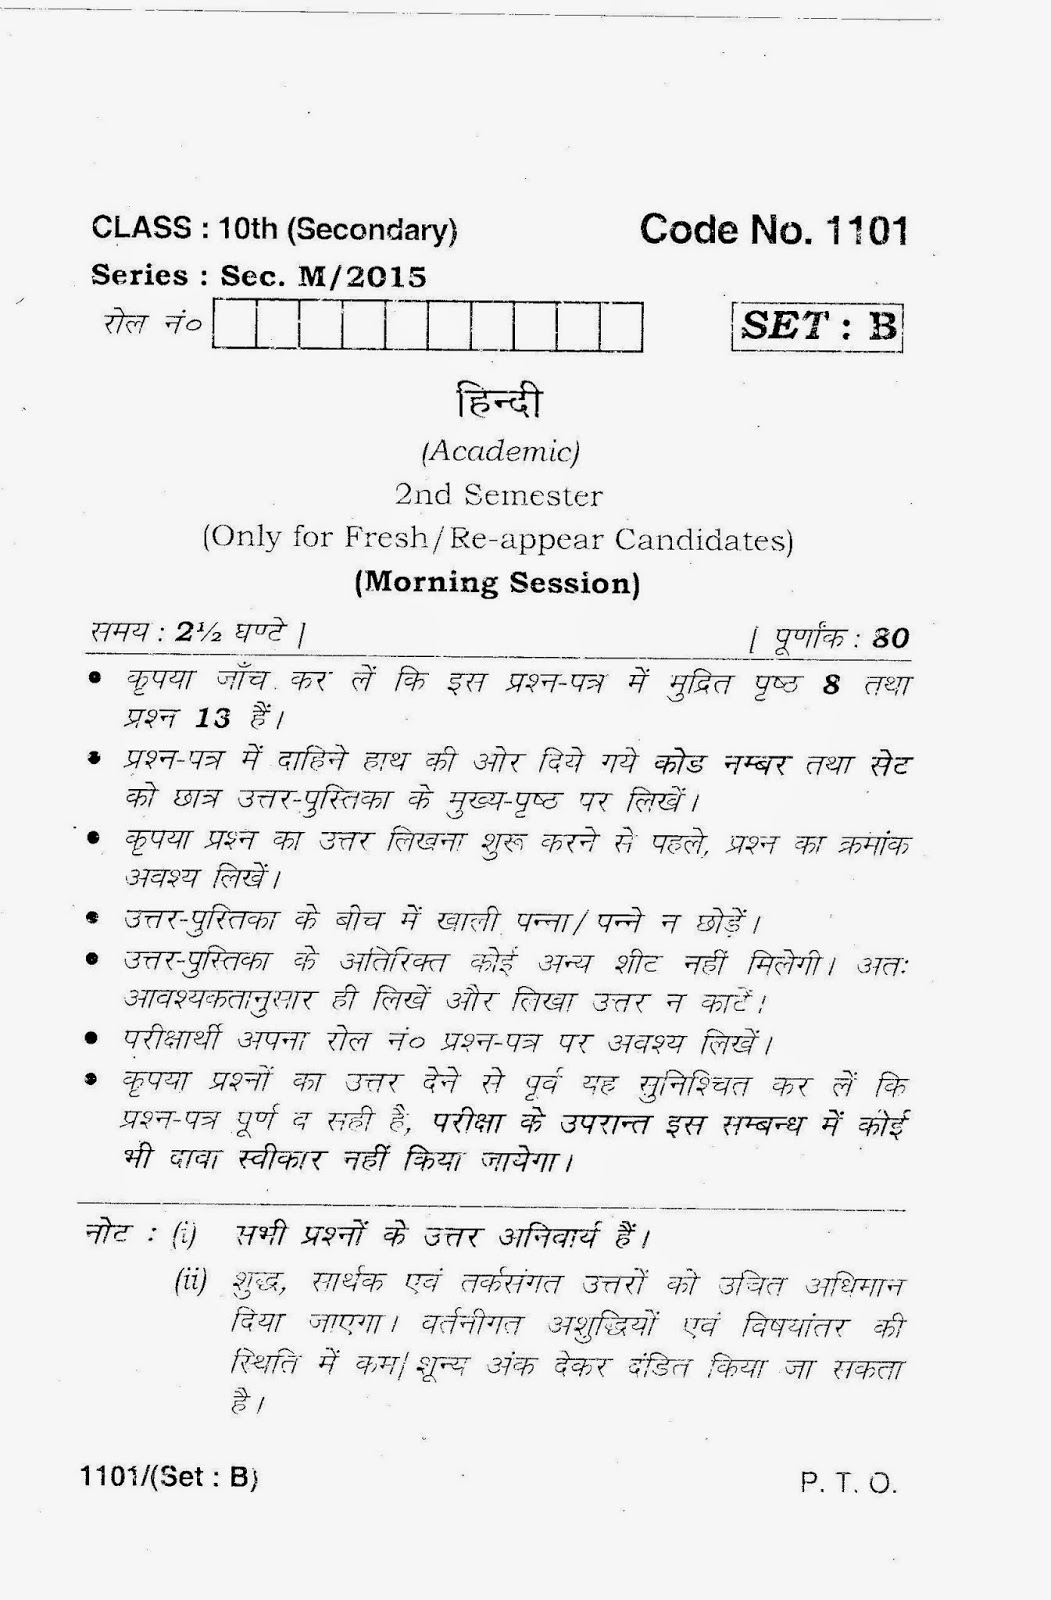 CLASS : 10th (Secondary) Code No. 1101
Series : Sec. M/2015
रोल नं० SET : B
हिन्दी
(Academic)
2nd Semester
(Only for Fresh/Re-appear Candidates)
(Morning Session)
समय : 2½ घण्टे ] [ पूर्णांक : 80
• कृपया जाँच कर लें कि इस प्रश्न-पत्र में मुद्रित पृष्ठ 8 तथा
प्रश्न 13 हैं।
• प्रश्न-पत्र में दाहिने हाथ की ओर दिये गये कोड नम्बर तथा सेट
को छात्र उत्तर-पुस्तिका के मुख्य-पृष्ठ पर लिखें।
• कृपया प्रश्न का उत्तर लिखना शुरू करने से पहले, प्रश्न का क्रमांक
अवश्य लिखें।
• उत्तर-पुस्तिका के बीच में खाली पन्ना/पन्ने न छोड़ें।
• उत्तर-पुस्तिका के अतिरिक्त कोई अन्य शीट नहीं मिलेगी। अतः
आवश्यकतानुसार ही लिखें और लिखा उत्तर न काटें।
• परीक्षार्थी अपना रोल नं० प्रश्न-पत्र पर अवश्य लिखें।
• कृपया प्रश्नों का उत्तर देने से पूर्व यह सुनिश्चित कर लें कि
प्रश्न-पत्र पूर्ण व सही है, परीक्षा के उपरान्त इस सम्बन्ध में कोई
भी दावा स्वीकार नहीं किया जायेगा।
नोट : (i) सभी प्रश्नों के उत्तर अनिवार्य हैं।
(ii) शुद्ध, सार्थक एवं तर्कसंगत उत्तरों को उचित अधिमान
दिया जाएगा। वर्तनीगत अशुद्धियों एवं विषयांतर की
स्थिति में कम/शून्य अंक देकर दंडित किया जा सकता
है।
1101/(Set : B) P. T. O.